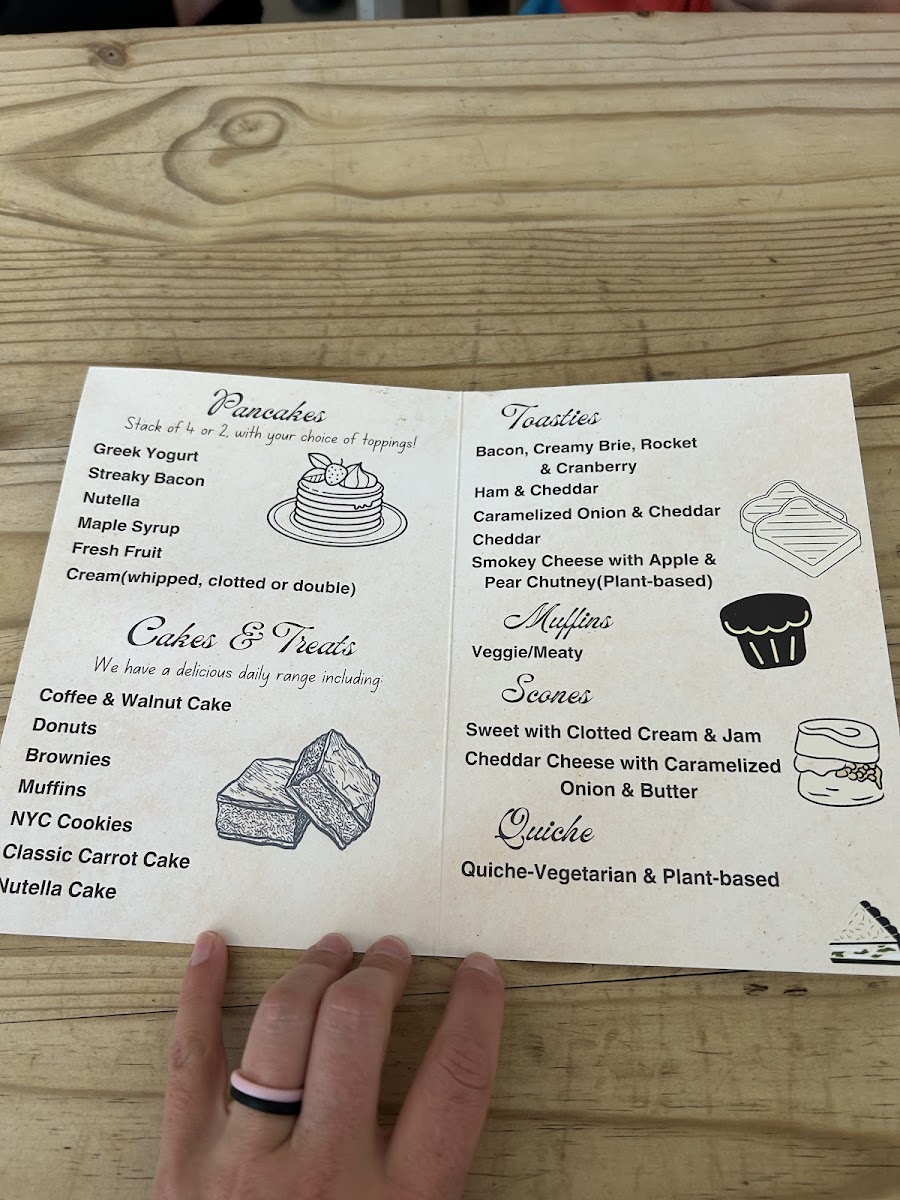 Pancakes
Stack of 4 or 2, with your choice of toppings!
Greek Yogurt
Streaky Bacon
Nutella
Maple Syrup
Fresh Fruit
Cream(whipped, clotted or double)
Cakes & Treats
We have a delicious daily range including:
Coffee & Walnut Cake
Donuts
Brownies
Muffins
NYC Cookies
Classic Carrot Cake
Nutella Cake
Toasties
Bacon, Creamy Brie, Rocket
& Cranberry
Ham & Cheddar
Caramelized Onion & Cheddar
Cheddar
Smokey Cheese with Apple &
Pear Chutney(Plant-based)
Muffins
Veggie/Meaty
Scones
Sweet with Clotted Cream & Jam
Cheddar Cheese with Caramelized
Onion & Butter
Quiche
Quiche-Vegetarian & Plant-based